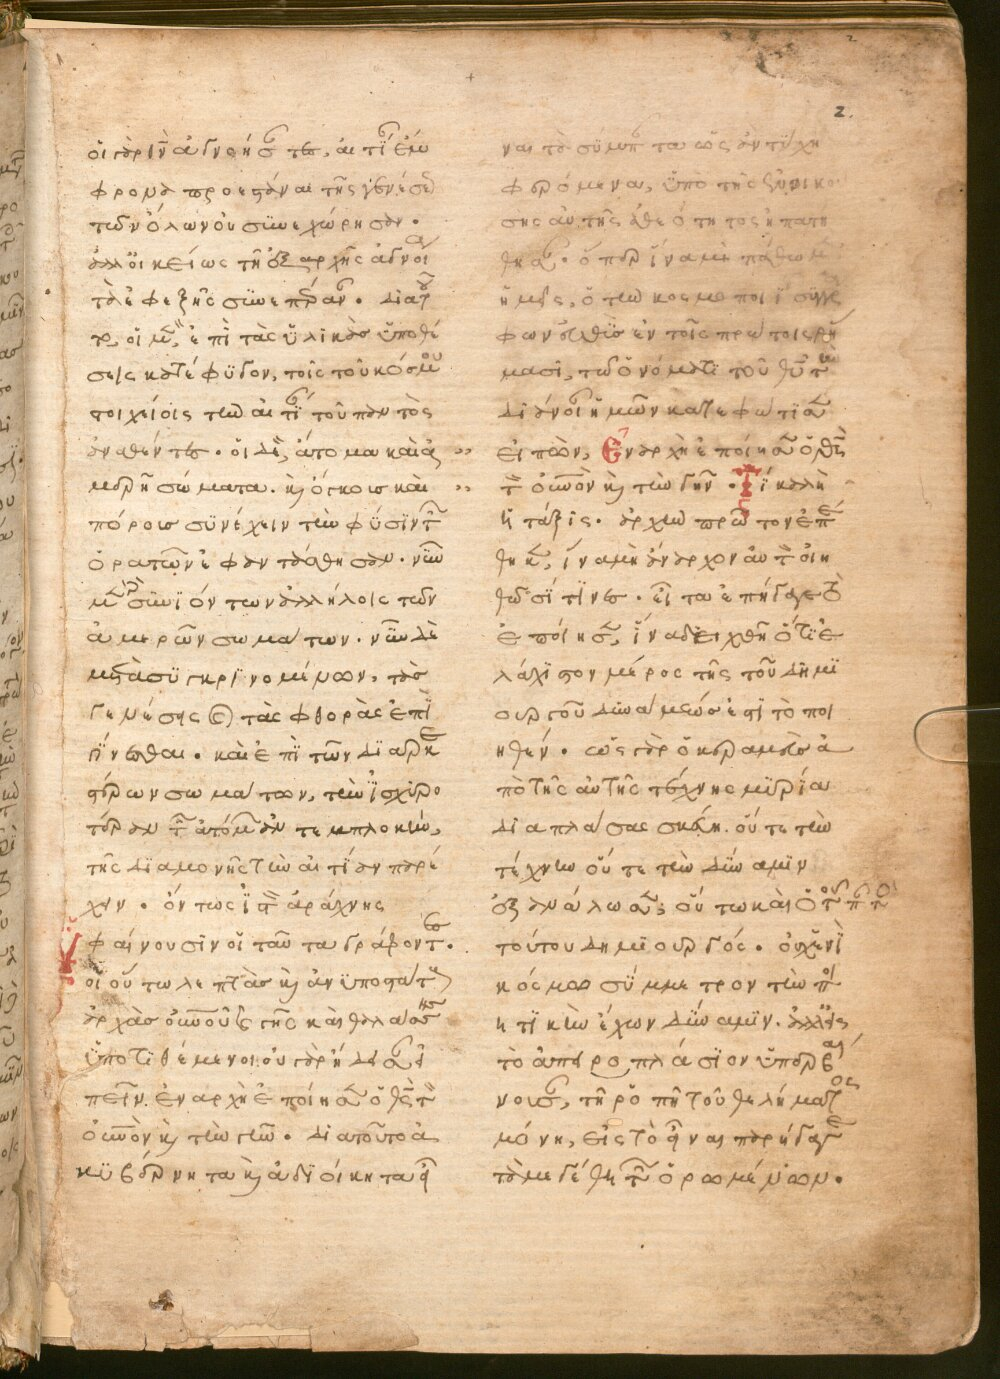 οἱ γὰρ θν ἀγνοήσαντες, αἰτίαν ἔμ
φρονα προεστάναι τῆς γενέσεως
τῶν ὅλων οὐ συνεχώρησαν.
ἀλλ' οἰκείως τῇ ἐξ ἀρχῆς ἀγνοίᾳ
τὰ ἐφεξῆς συνεπέραναν. διὰ τοῦ
το, οἱ μὲν ἐπὶ τὰς ὑλικὰς ὑποθέ
σεις κατέφυγον, τοῖς τοῦ κόσμου
στοιχείοις τὴν αἰτίαν τοῦ παντὸς
ἀναθέντες. οἱ δὲ, ἄτομα καὶ ἀ
μερῆ σώματα. καὶ ὄγκοις καὶ
πόροις συνέχειν τὴν φύσιν τῶν
ὁρατῶν ἐφαντάσθησαν. νῦν
μὲν γὰρ συνιόντων ἀλλήλοις τῶν
ἀμερῶν σωμάτων. νῦν δὲ
μετασυγκρινομένων, τὰς
γενέσεις καὶ τὰς φθορὰς ἐπι
γίνεσθαι. καὶ ἐπὶ τῶν διαρκε
στέρων σωμάτων, τὴν ἰσχυρο
τέραν τῶν ἀτόμων ἀντεμπλοκὴν,
τῆς διαμονῆς τὴν αἰτίαν παρέ
χειν. ὄντως ἱστὸν ἀράχνης
ὑφαίνουσιν οἱ ταῦτα γράφοντες.
οἱ οὕτω λεπτὰς καὶ ἀνυποστάτους
ἀρχὰς οὐνοῦ καὶ γῆς καὶ θαλάσσης
ὑποτιθέμενοι. οὐ γὰρ ᾔδεσαν εἰ
πεῖν. ἐν ἀρχῇ ἐποίησεν ὁ θς τὸν
οὐνὸν καὶ τὴν γῆν. διὰ τοῦτο ἀ
κυβέρνητα καὶ ἀδιοίκητα εἶ
ναι τὰ σύμπαντα ὡς ἂν τύχῃ
φερόμενα, ὑπὸ τῆς ἐνοικού
σης αὐτῆς ἀθεότητος ἠπατή
θησαν. ὅπερ ἵνα μὴ πάθωμεν
ἡμεῖς, ὁ τὴν κοσμοποιΐαν συγγρά
φων εὐθὺς ἐν τοῖς πρώτοις ῥή
μασι, τῷ ὀνόματι τοῦ θυ τὴν
διάνοιαν ἡμῶν κατεφώτισεν
εἰπὼν, Ἐν ἀρχῇ ἐποίησεν ὁ θς
τὸν οὐνὸν καὶ τὴν γῆν. Τί καλὴ
ἡ τάξις. ἀρχὴν πρῶτον ἐπέ
θηκεν, ἵνα μὴ ἄναρχον αὐτὸν οἰη
θῶσί τινες. εἶτα ἐπήγαγε τὸ
ἐποίησεν, ἵνα δειχθῇ ὅτι ἐ
λάχιστον μέρος τῆς τοῦ δημι
ουργοῦ δυνάμεώς ἐστι τὸ ποι
ηθέν. ὡς γὰρ ὁ κεραμεὺς ἀ
πὸ τῆς αὐτῆς τέχνης μυρία
διαπλάσας σκεύη. οὔτε τὴν
τέχνην οὔτε τὴν δύναμιν
ἐξανάλωσεν, οὕτω καὶ ὁ τοῦ παντὸς
τούτου δημιουργός. οὐχ ἑνὶ
κόσμῳ σύμμετρον τὴν ποι
ητικὴν ἔχων δύναμιν. ἀλλ' εἰς
τὸ ἀπειροπλάσιον ὑπερβαί
νουσαν, τῇ ῥοπῇ τοῦ θελήματος
μόνῃ, εἰς τὸ εἶναι παρήγαγε
τὰ μεγέθη τῶν ὁρωμένων.